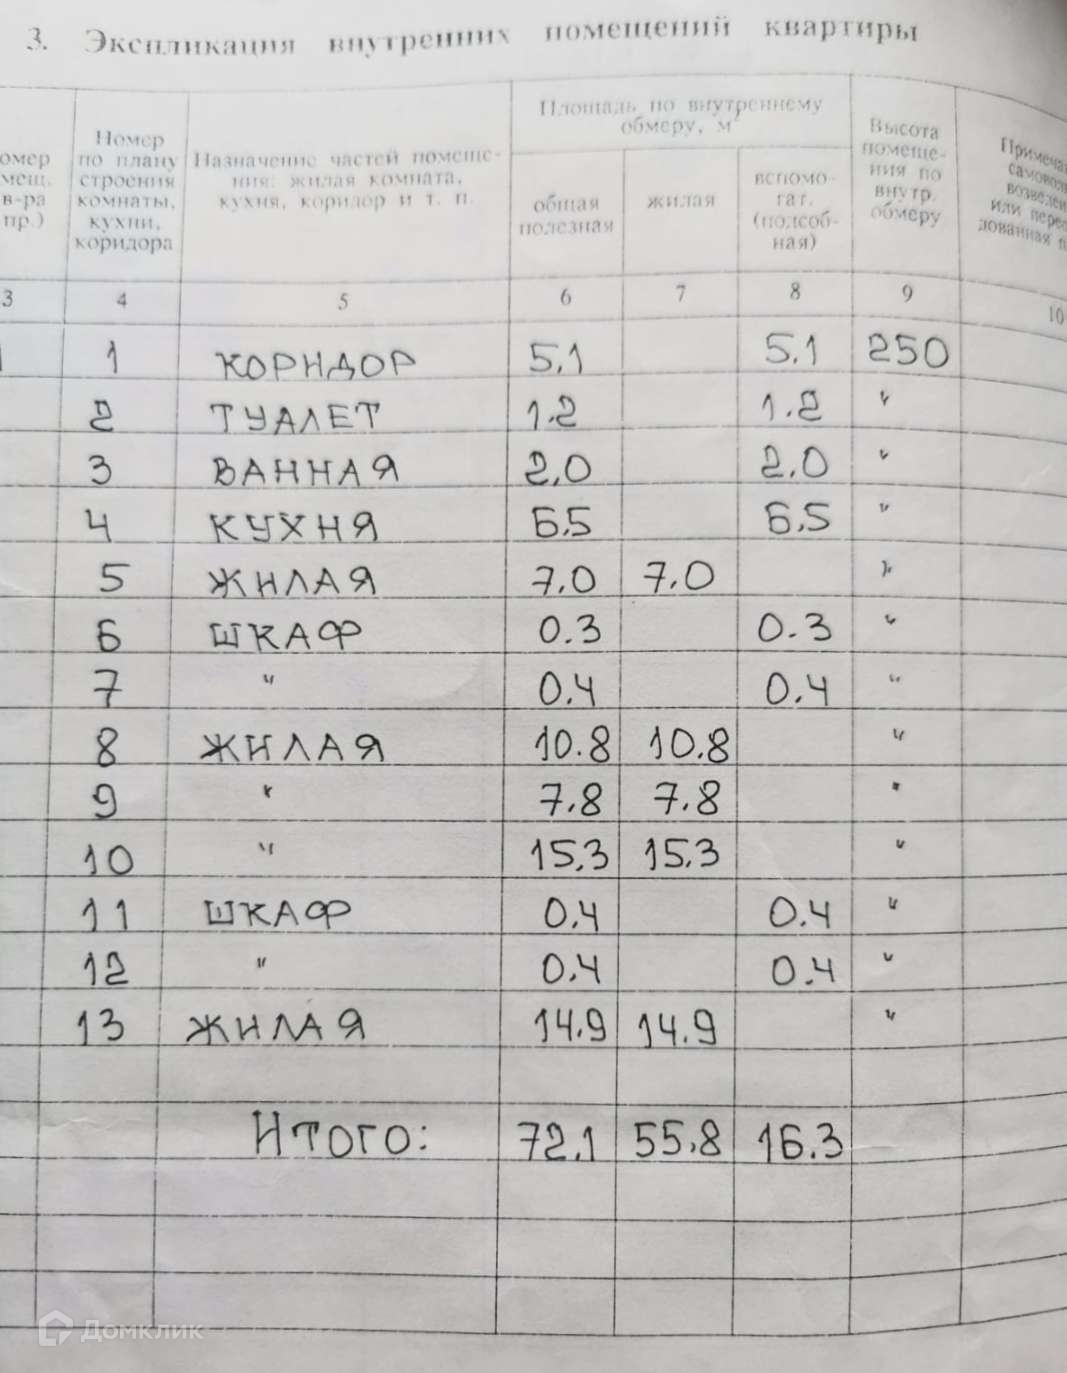 3. Экспликация внутренних помещений квартиры
омер
мещ.
в-ра
пр.)
Номер
по плану
строения
комнаты,
кухни,
коридора
Назначение частей помеще-
ния: жилая комната,
кухня, коридор и т. п.
Площадь по внутреннему
обмеру, м²
общая
полезная
жилая
вспомо-
гат.
(подсоб-
ная)
Высота
помеще-
ния по
внутр.
обмеру
Примеча
самовол
возведен
или перео
дованная п
3 4 5 6 7 8 9 10
1 1 КОРИДОР 5,1 5,1 250
2 ТУАЛЕТ 1.2 1.2 "
3 ВАННАЯ 2,0 2.0 "
4 КУХНЯ 6,5 6,5 "
5 ЖИЛАЯ 7,0 7.0 "
6 ШКАФ 0.3 0.3 "
7 " 0.4 0.4 "
8 ЖИЛАЯ 10.8 10.8 "
9 " 7,8 7.8 "
10 " 15,3 15.3 "
11 ШКАФ 0.4 0.4 "
12 " 0.4 0.4 "
13 ЖИЛАЯ 14.9 14.9 "
Итого: 72,1 55,8 16.3
Домклик